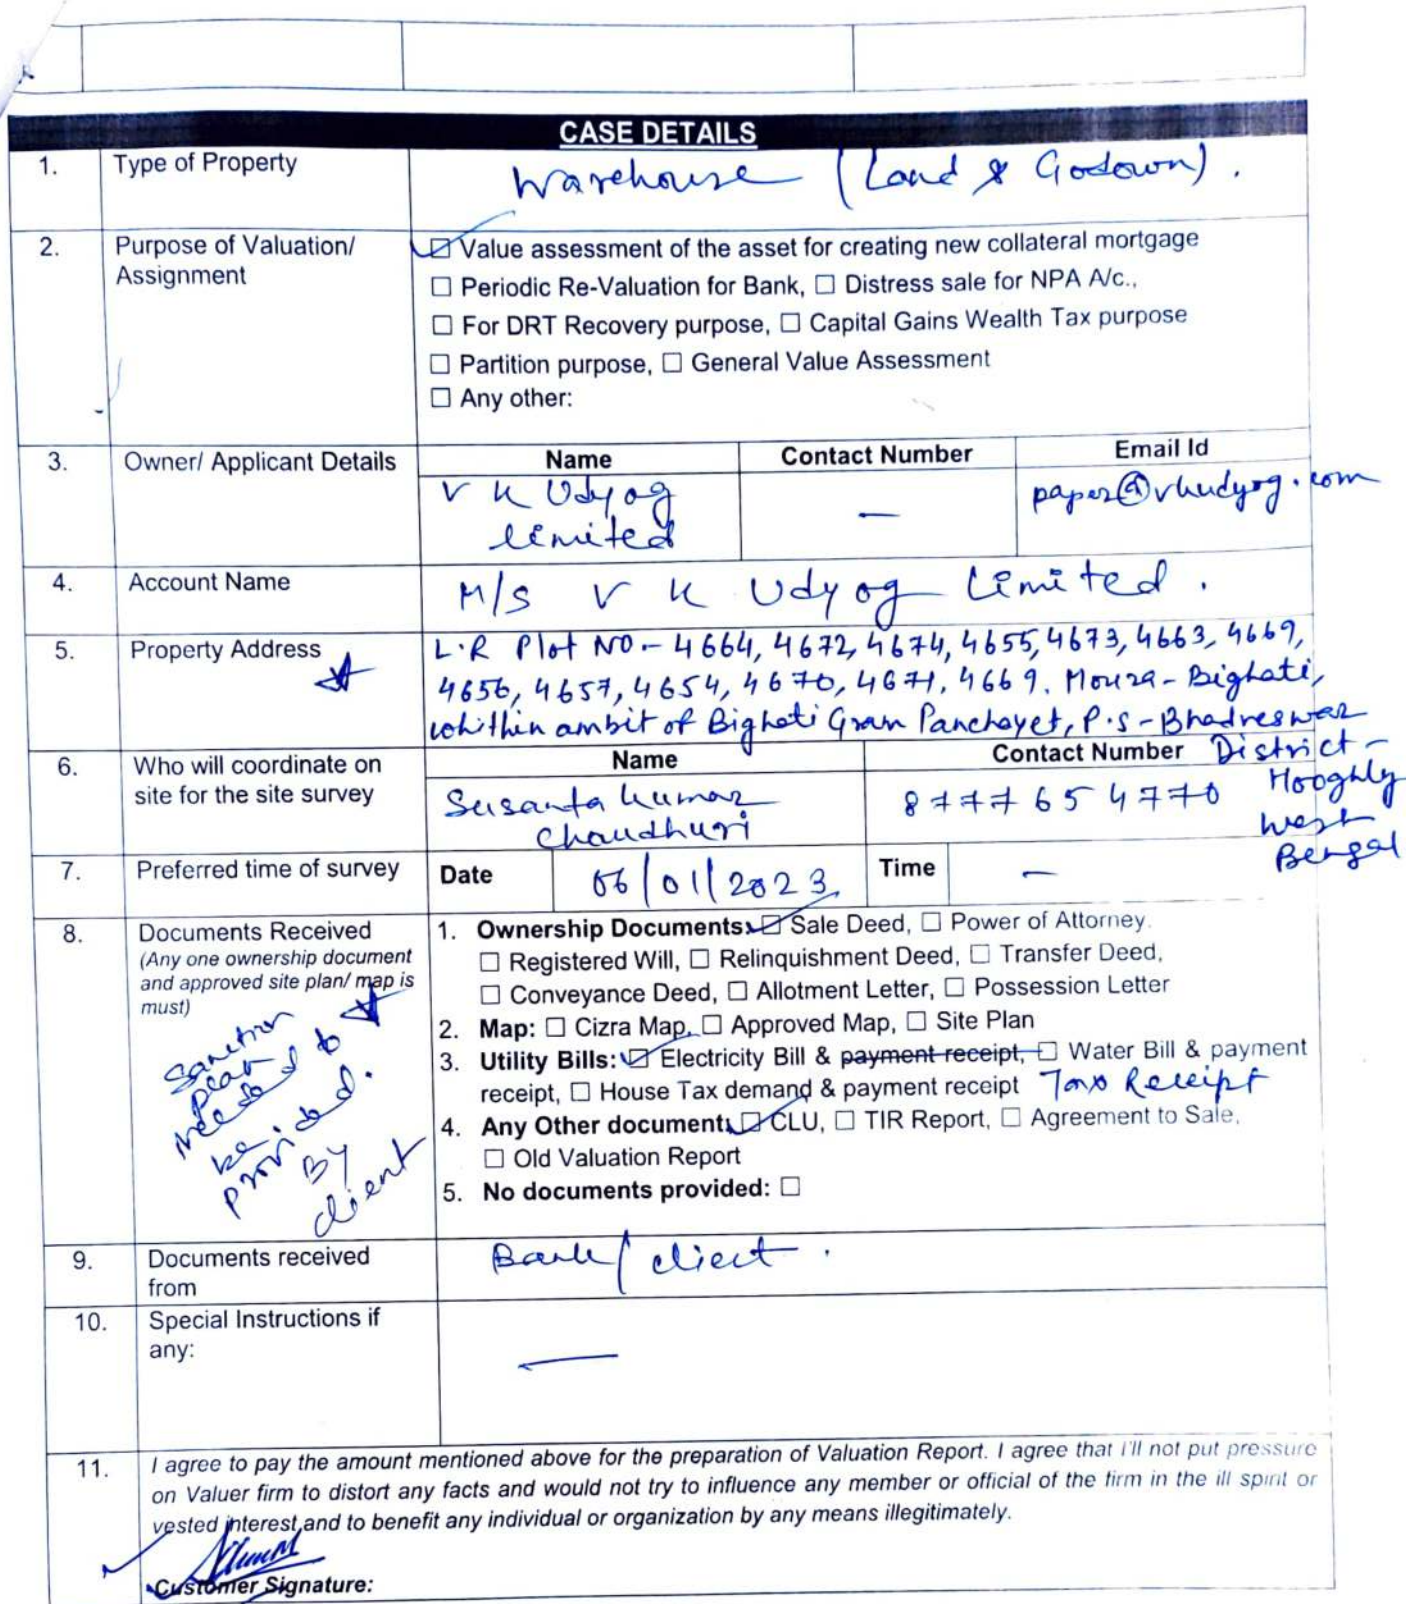 CASE DETAILS
1. Type of Property
Warehouse (Land & Godown).
2. Purpose of Valuation/
Assignment
☑ Value assessment of the asset for creating new collateral mortgage
☐ Periodic Re-Valuation for Bank, ☐ Distress sale for NPA A/c.,
☐ For DRT Recovery purpose, ☐ Capital Gains Wealth Tax purpose
☐ Partition purpose, ☐ General Value Assessment
☐ Any other:
3. Owner/ Applicant Details
Name Contact Number Email Id
V K Udyog — paper@vkudyog.com
limited
4. Account Name
M/S V K Udyog Limited.
5. Property Address
L.R Plot NO.- 4664, 4672, 4674, 4655, 4673, 4663, 4669,
4656, 4657, 4654, 4670, 4671, 4669. Mouza - Bighati,
whithin ambit of Bighati Gram Panchayet, P.S - Bhadreswar
District -
Hooghly
West
Bengal
6. Who will coordinate on
site for the site survey
Name Contact Number
Susanta Kumar 8777654770
Chaudhuri
7. Preferred time of survey
Date 06/01/2023 Time —
8. Documents Received
(Any one ownership document
and approved site plan/ map is
must)
Sanction
plan
needed to
be
provided.
BY
client
1. Ownership Documents: ☑ Sale Deed, ☐ Power of Attorney.
☐ Registered Will, ☐ Relinquishment Deed, ☐ Transfer Deed,
☐ Conveyance Deed, ☐ Allotment Letter, ☐ Possession Letter
2. Map: ☐ Cizra Map, ☐ Approved Map, ☐ Site Plan
3. Utility Bills: ☑ Electricity Bill & payment receipt, ☐ Water Bill & payment
receipt, ☐ House Tax demand & payment receipt Tax Receipt
4. Any Other document: ☑ CLU, ☐ TIR Report, ☐ Agreement to Sale,
☐ Old Valuation Report
5. No documents provided: ☐
9. Documents received
from
Bank/ client.
10. Special Instructions if
any:
—
11. I agree to pay the amount mentioned above for the preparation of Valuation Report. I agree that I'll not put pressure
on Valuer firm to distort any facts and would not try to influence any member or official of the firm in the ill spirit or
vested interest and to benefit any individual or organization by any means illegitimately.
Customer Signature: